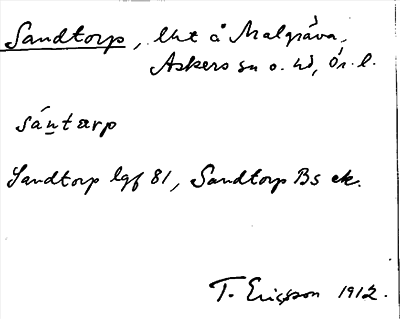 Sandtorp, lht å Malgräva,
Askers sn o. hd, Ör. l.
sántarp
Sandtorp lgf 81, Sandtorp Bs ek.
T. Ericsson 1912.